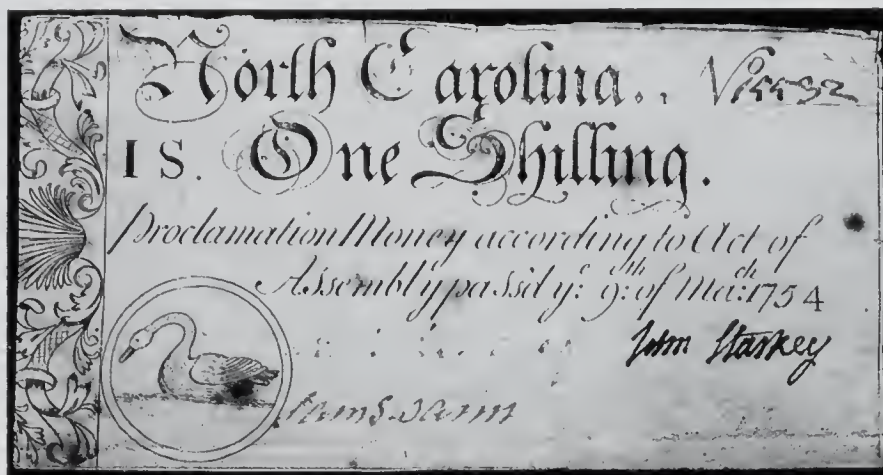 North Carolina..
IS. One Shilling.
Proclamation Money according to Act of
Assembly passd yᵉ: 9ᵗʰ: of Maᶜʰ: 1754
John Starkey